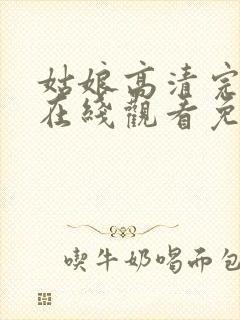 姑娘高清完
在綫觀看免
喫牛奶喝面包